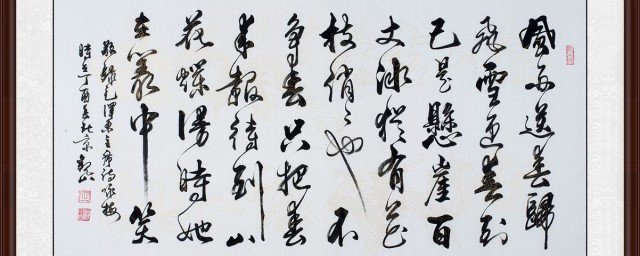 風雨送春歸
飛雪迎春到
已是懸崖百
丈冰猶有花
枝俏〻也不
爭春只把春
来報待到山
花爛漫時她
在叢中笑
敬録毛澤東主席詩咏梅
時在丁酉春於京